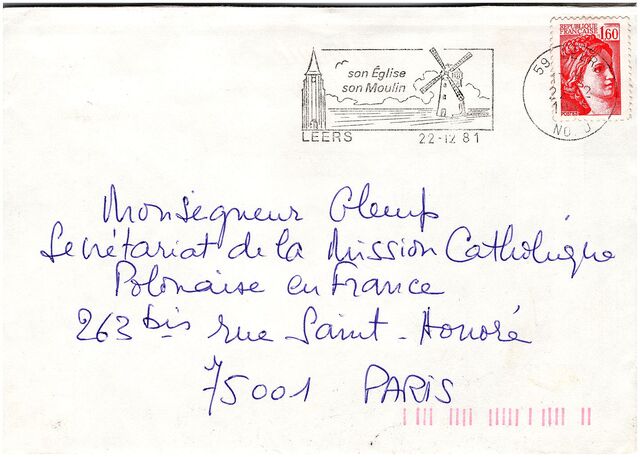 son Église
son Moulin
LEERS
22-12 81
REPUBLIQUE
FRANÇAISE
1,60
POSTES
59
NORD
Monseigneur Glemp
Secrétariat de la Mission Catholique
Polonaise en France
263 bis rue Saint-Honoré
75001 PARIS